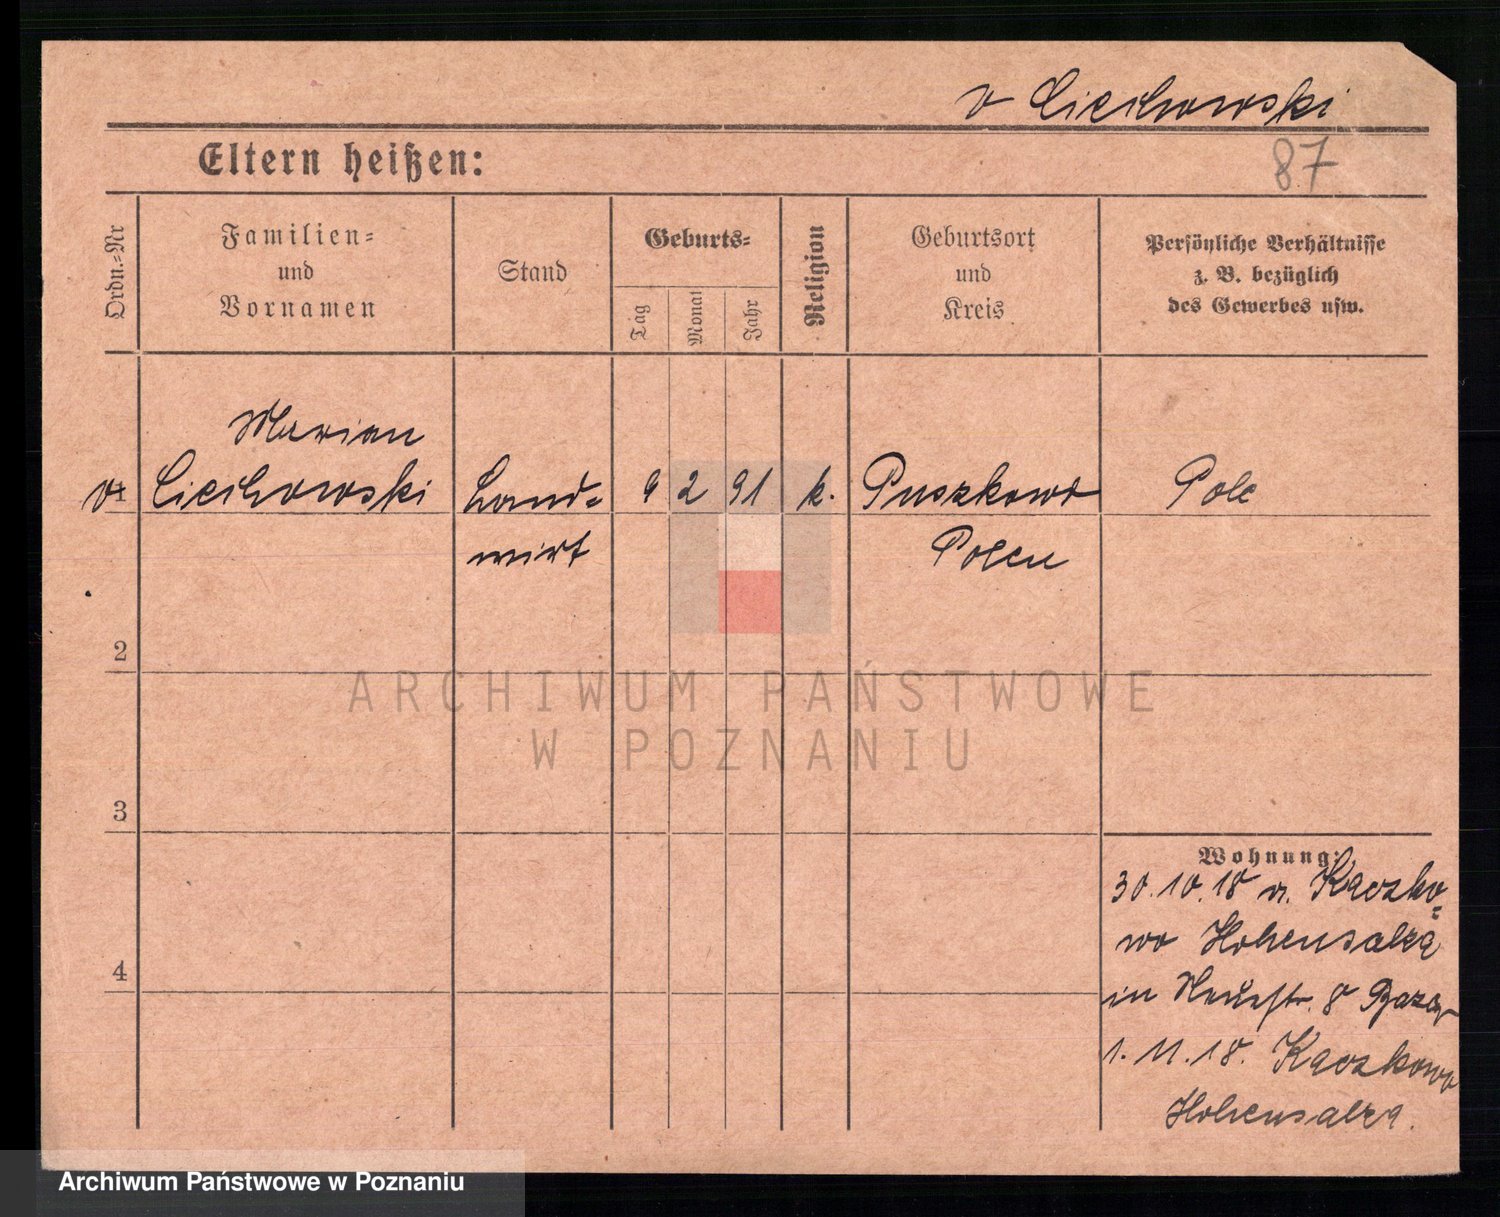 v Ciechowski
Eltern heißen:
87
Ordn.-Nr
Familien-
und
Vornamen
Stand
Geburts-
Tag
Monat
Jahr
Religion
Geburtsort
und
Kreis
Persönliche Verhältnisse
z. B. bezüglich
des Gewerbes usw.
Marian
v Ciechowski
Land-
wirt
9 2 91 k.
Puszkowo
Polen
Pole
2
3
4
ARCHIWUM PAŃSTWOWE
W POZNANIU
Wohnung:
30.10.18 v. Kaczko-
wo Hohensalza
in Neuestr. 8
1.11.18. Kaczkowo
Hohensalza.
Archiwum Państwowe w Poznaniu